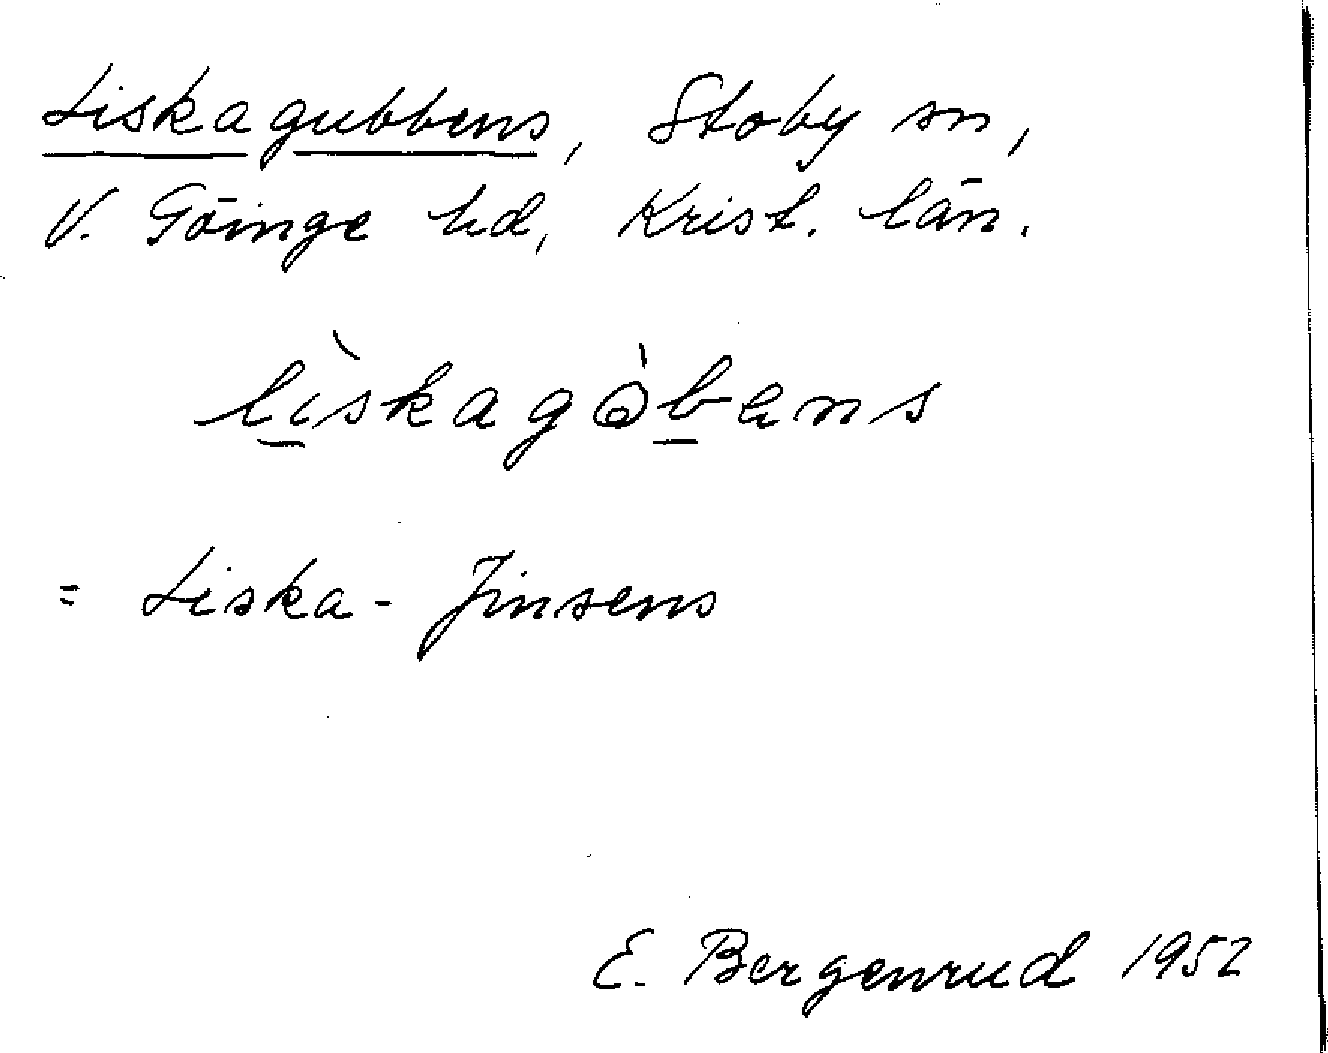 Liskagubbens, Stoby sn,
V. Göinge hd, Krist. län.
lìskagòbans
= Liska-Jinsens
E. Bergenrud 1952